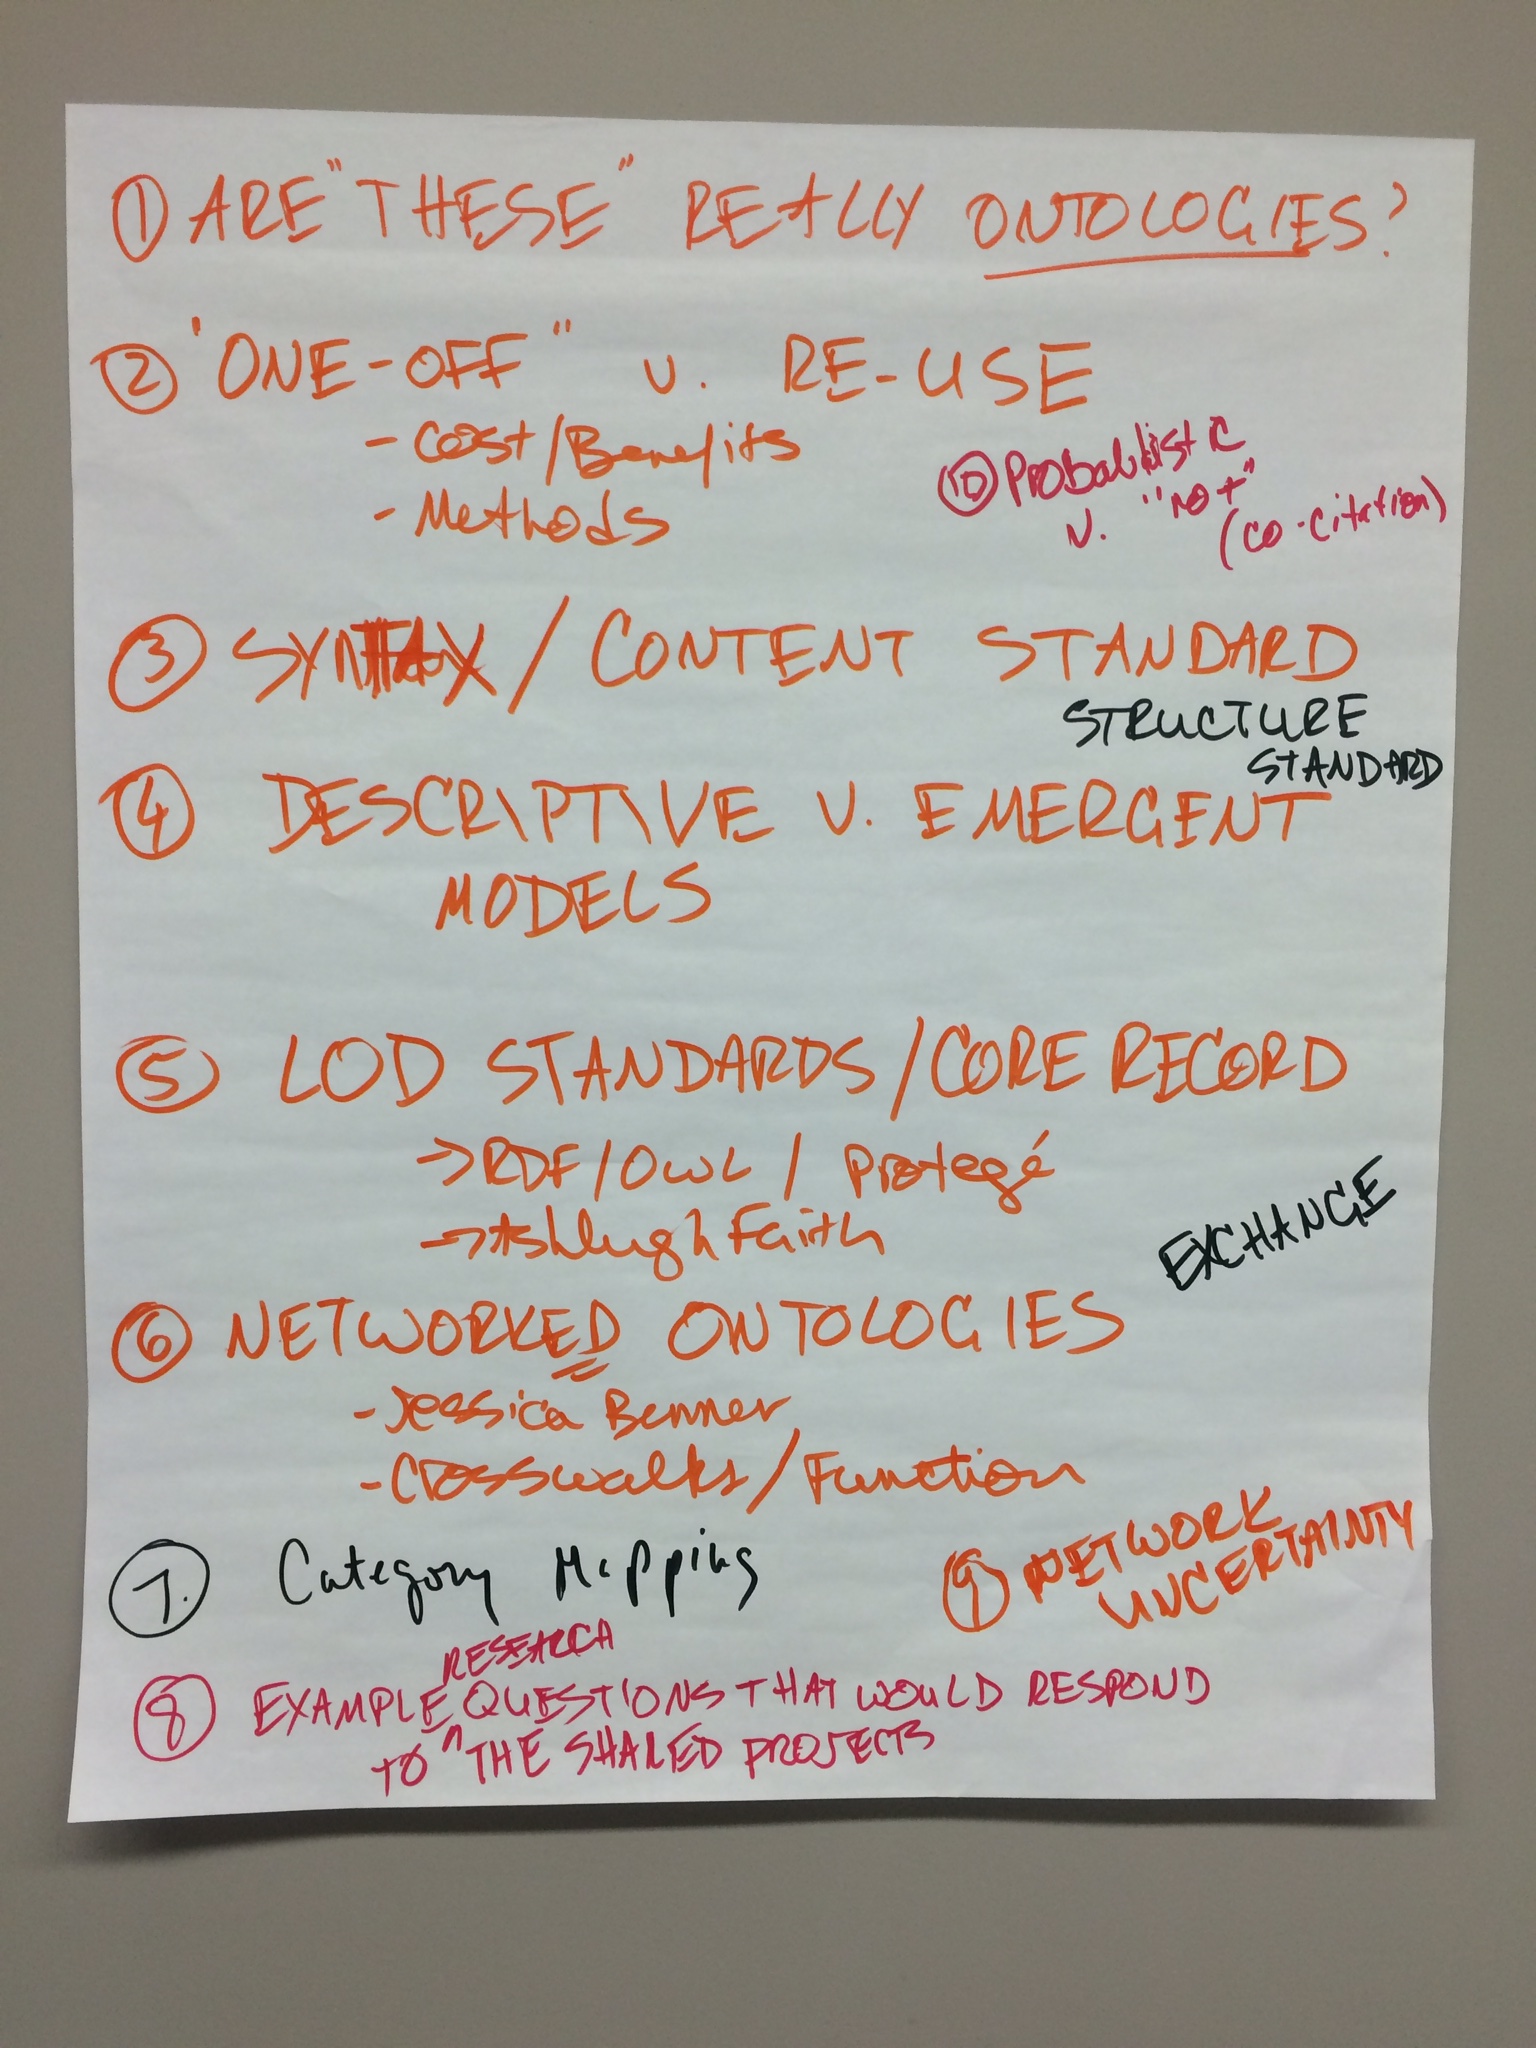 ① ARE "THESE" REALLY ONTOLOGIES?
② 'ONE-OFF" v. RE-USE
- Cost/Benefits
- Methods
⑩ Probabilistic
v. "not"
(co-citation)
③ SYNTAX / CONTENT STANDARD
STRUCTURE
STANDARD
④ DESCRIPTIVE V. EMERGENT
MODELS
⑤ LOD STANDARDS / CORE RECORD
→ RDF/OWL / Protegé
→ Ashleigh Faith
EXCHANGE
⑥ NETWORKED ONTOLOGIES
- Jessica Benner
- Crosswalks / Function
⑦. Category Mapping
⑨ NETWORK
UNCERTAINTY
RESEARCH
⑧ EXAMPLE QUESTIONS THAT WOULD RESPOND
TO ^ THE SHARED PROJECTS